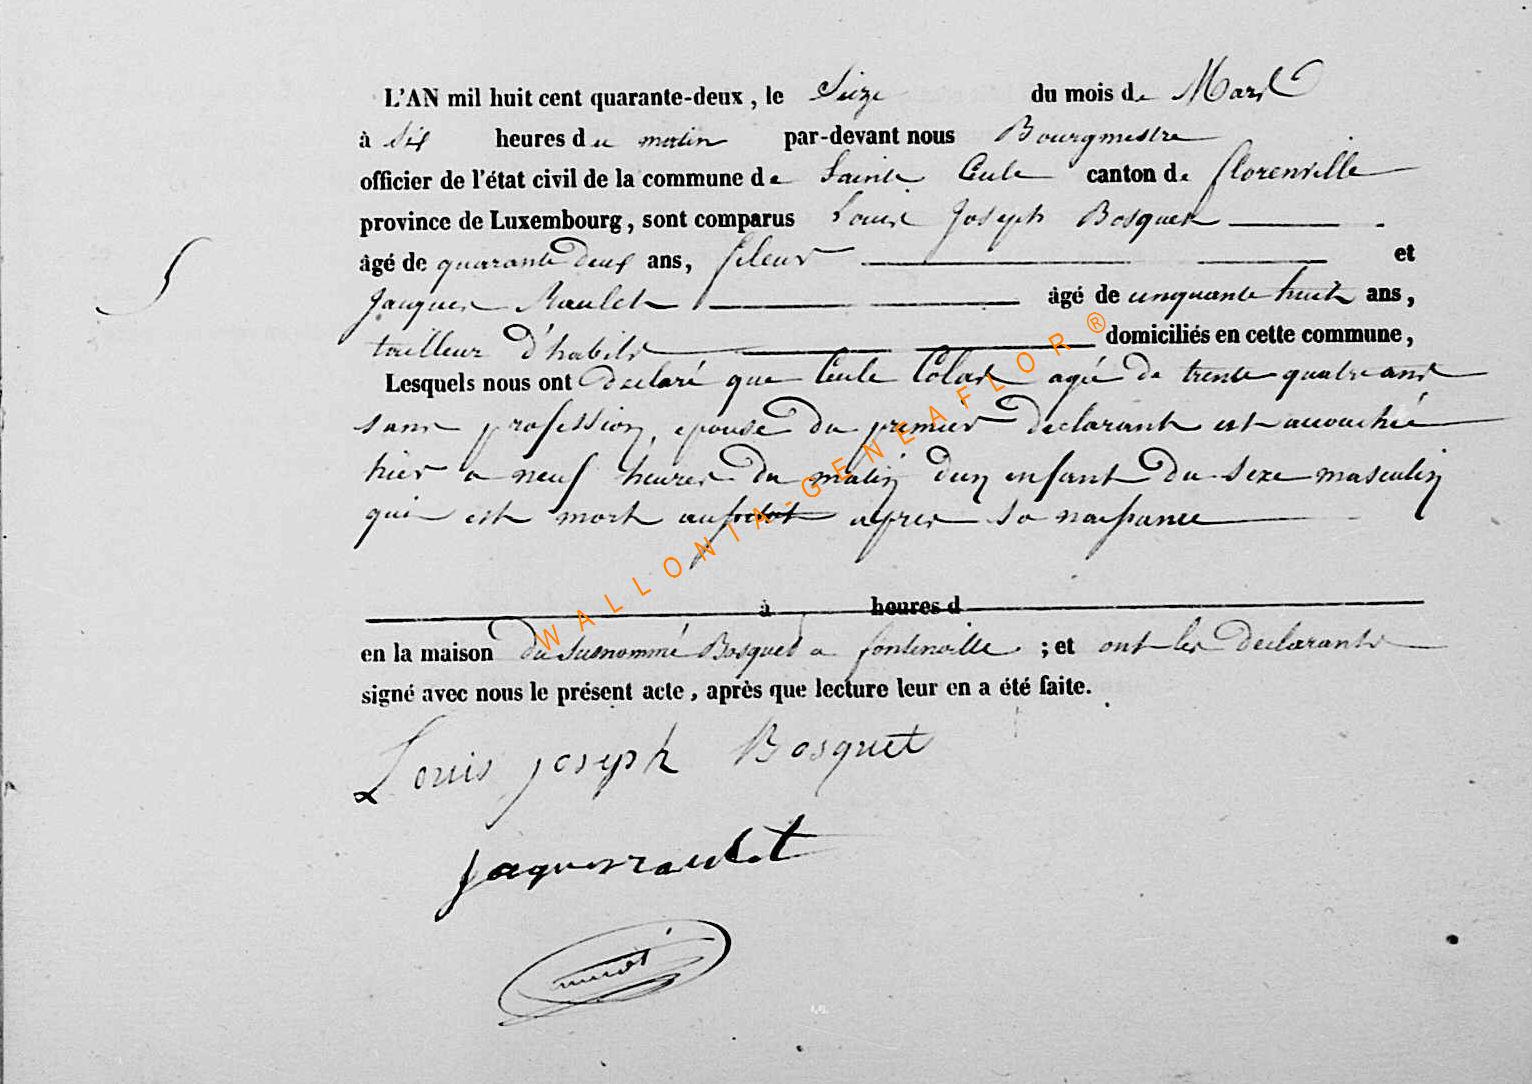 L'AN mil huit cent quarante-deux, le Seize du mois de Mars
à six heures du matin par-devant nous Bourgmestre
officier de l'état civil de la commune de Sainte Cécile canton de florenville
province de Luxembourg, sont comparus Louis Joseph Bosquet
5
âgé de quarante deux ans, fileur et
Jacques Raulet âgé de cinquante huit ans,
tailleur d'habits domiciliés en cette commune,
Lesquels nous ont declaré que Cecile Colas agé de trente quatre ans
sans profession, epouse du premier declarant est accouchée
hier a neuf heures du matin d'un enfant du sexe masculin
qui est mort aussitot apres sa naissance
à heures d
en la maison du susnommé Bosquet a fontenoille ; et ont les declarants
signé avec nous le présent acte, après que lecture leur en a été faite.
Louis joseph Bosquet
jaques raulet
WALLONIA-GENEAFLOR®